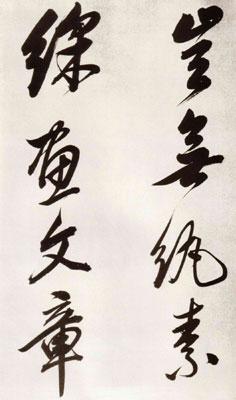 豈無紈素
綵畫文章